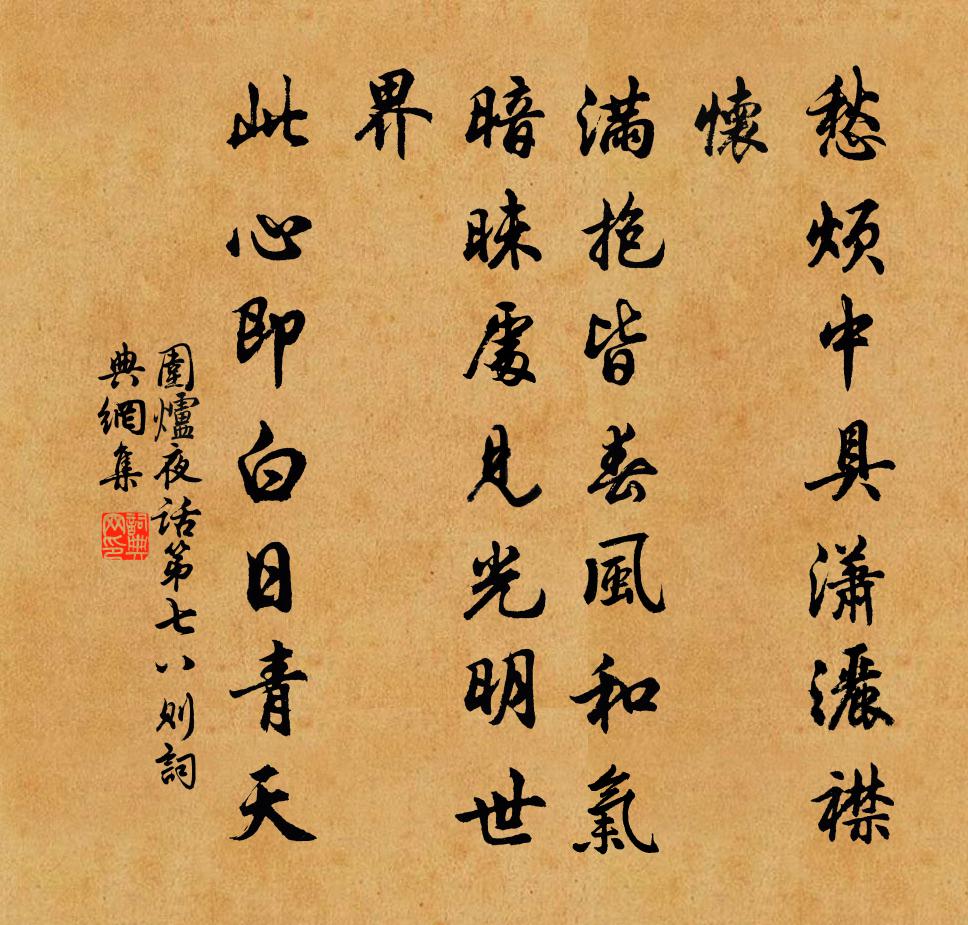 愁煩中具瀟灑襟
懷
滿抱皆春風和氣
暗昧處見光明世
界
此心即白日青天
圍爐夜话第七八则詞
典網集
詞典網印